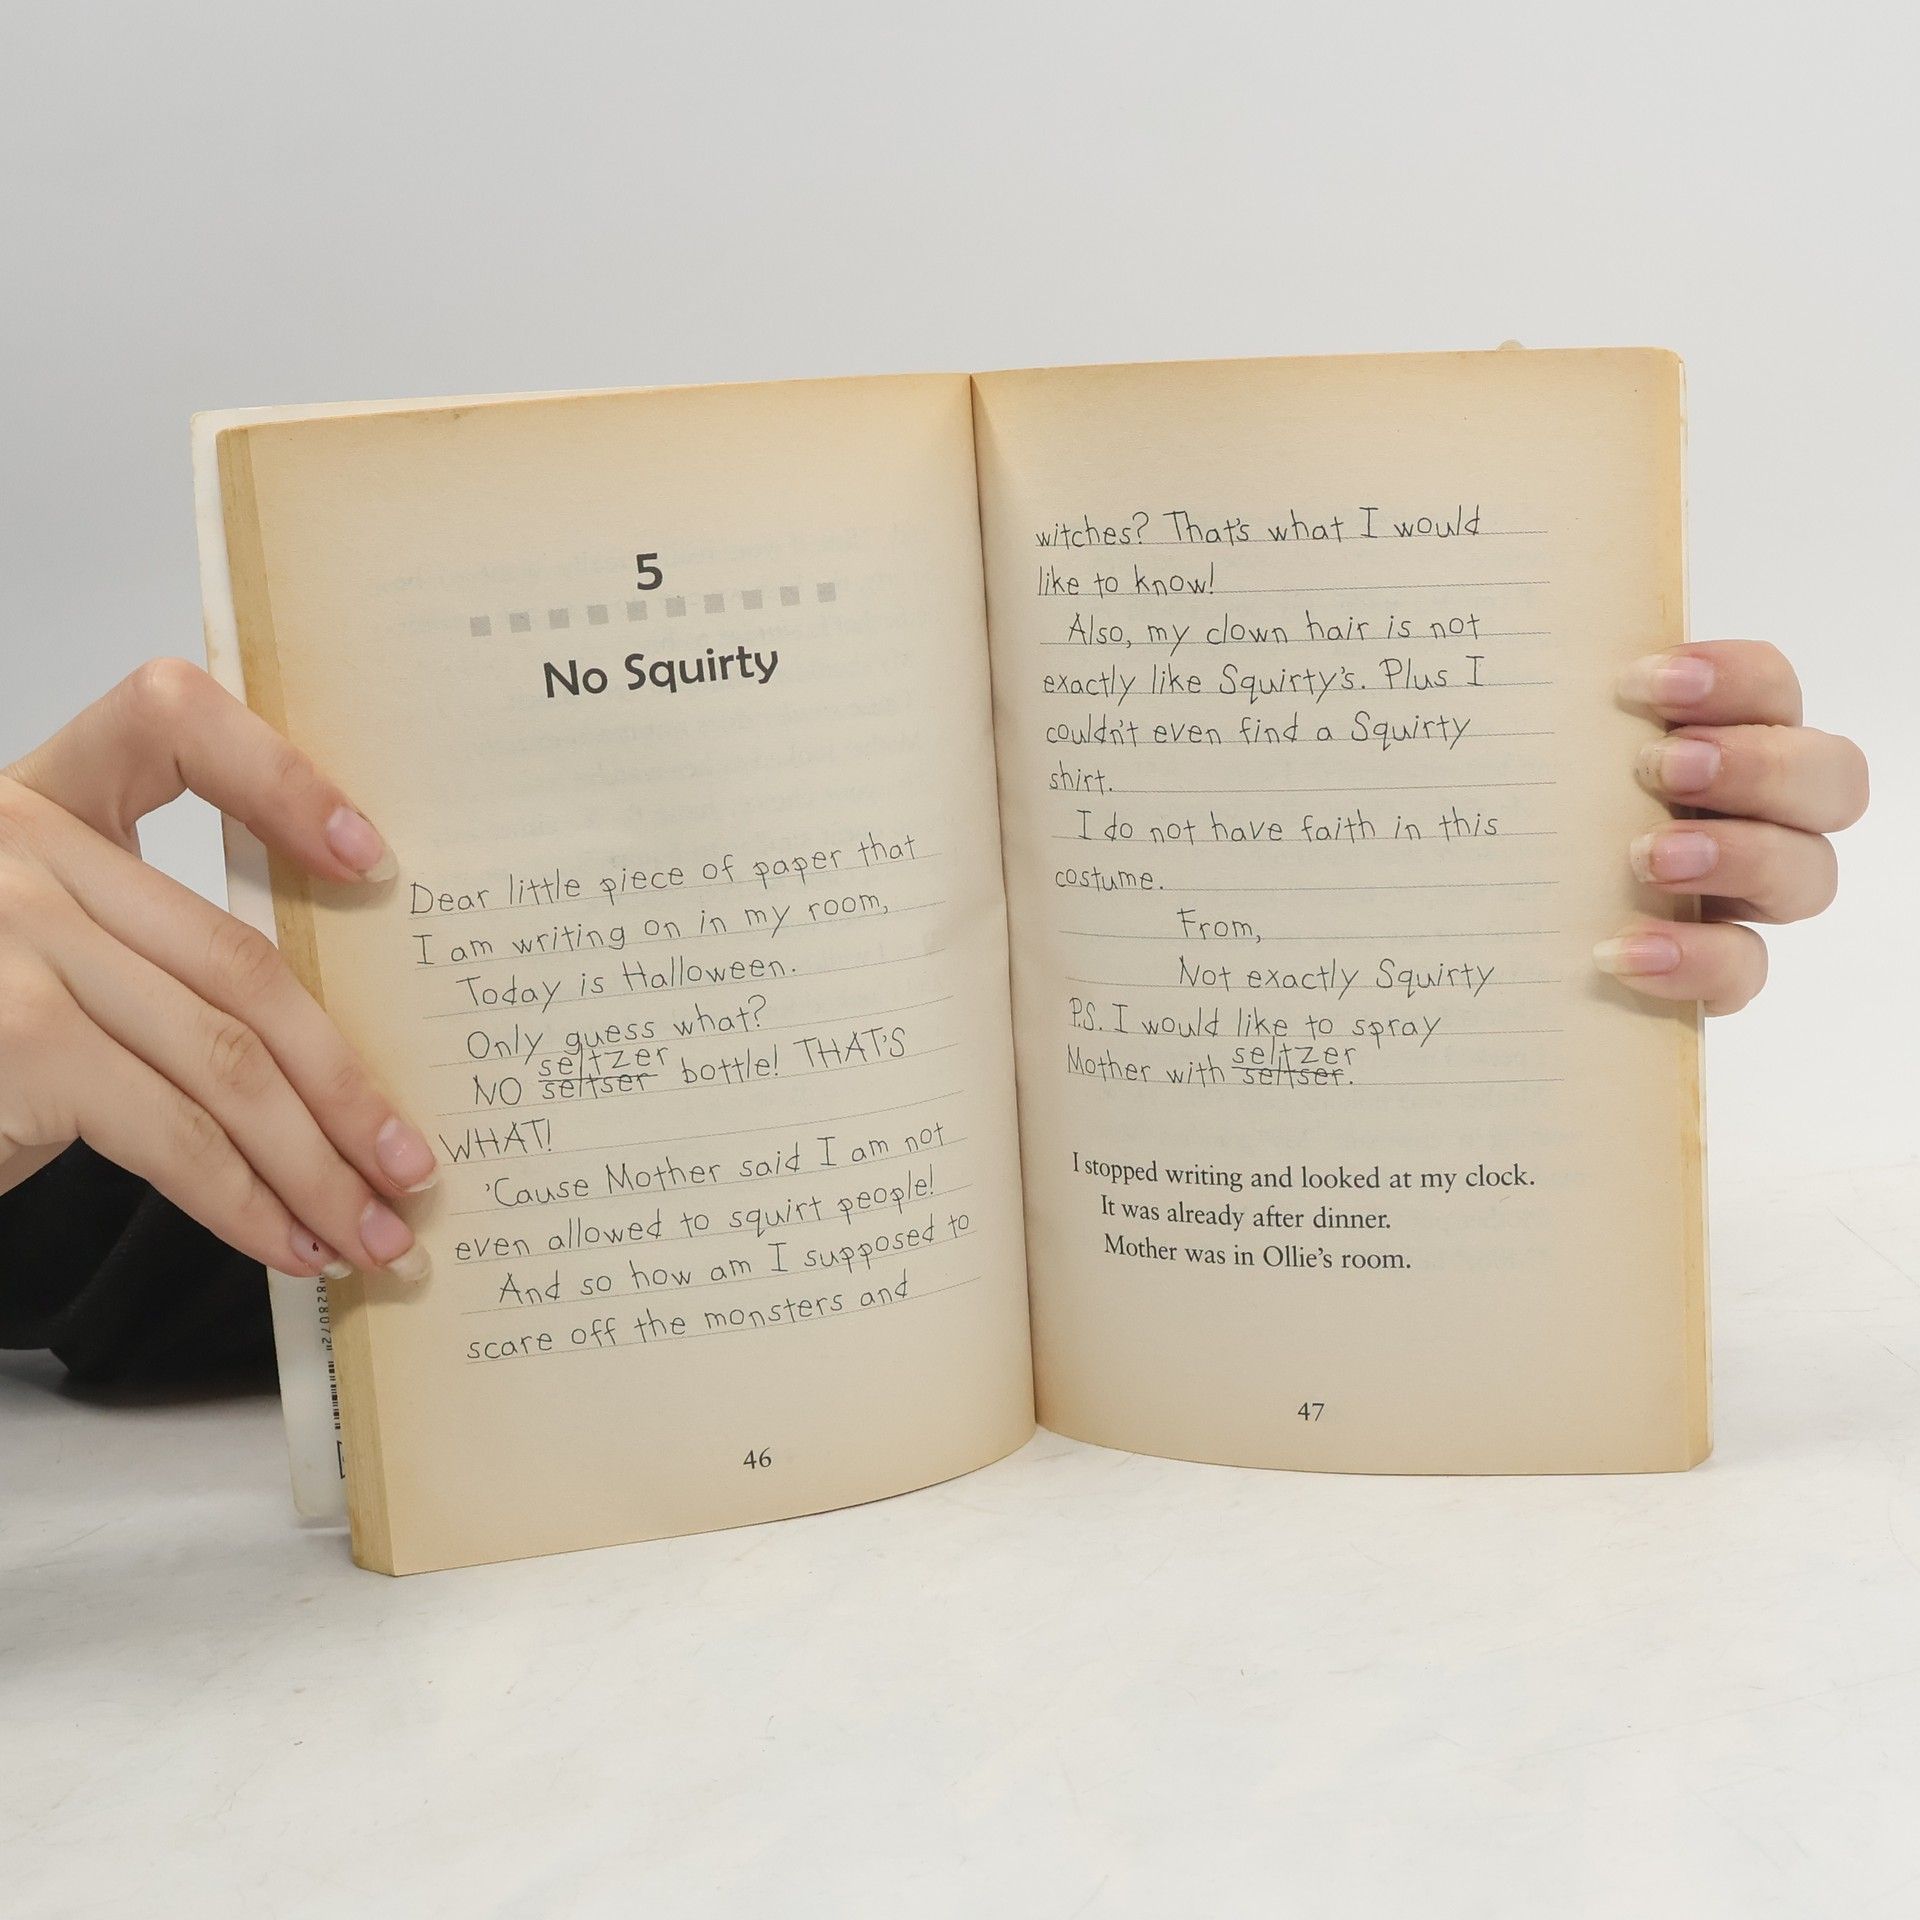 5
No Squirty
Dear little piece of paper that
I am writing on in my room,
Today is Halloween.
Only guess what?
seltzer
NO seltser bottle! THAT'S
WHAT!
'Cause Mother said I am not
even allowed to squirt people!
And so how am I supposed to
scare off the monsters and
46
witches? That's what I would
like to know!
Also, my clown hair is not
exactly like Squirty's. Plus I
couldn't even find a Squirty
shirt.
I do not have faith in this
costume.
From,
Not exactly Squirty
P.S. I would like to spray
seltzer
Mother with seltser.
I stopped writing and looked at my clock.
It was already after dinner.
Mother was in Ollie's room.
47